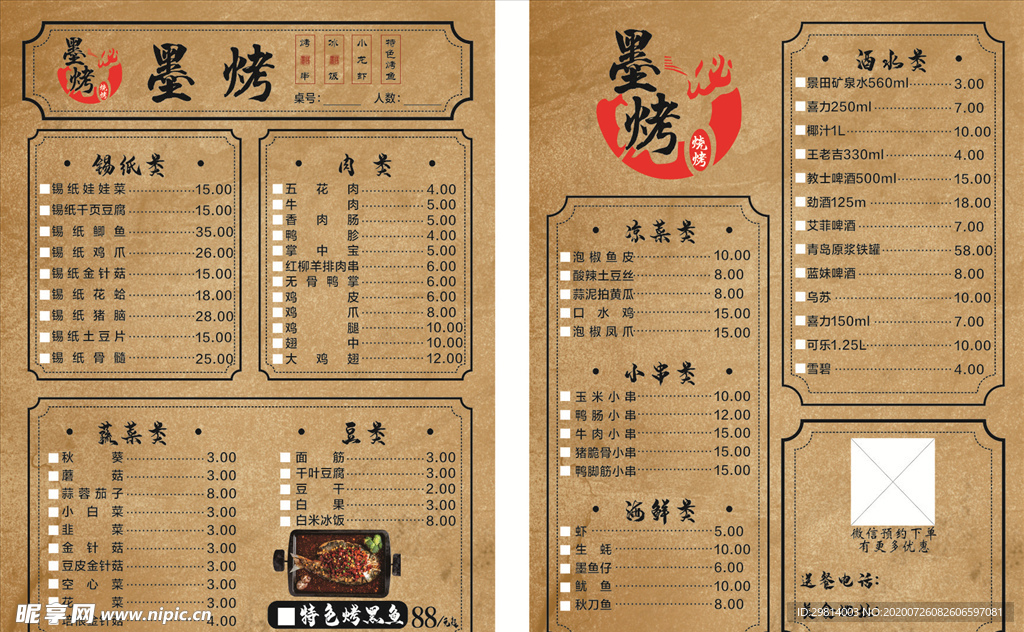 墨烤
烧烤
墨 烤
烤串
冰饭
小龙虾
特色烤鱼
桌号： 人数：
锡纸类
锡纸娃娃菜 15.00
锡纸千页豆腐 15.00
锡纸鲫鱼 35.00
锡纸鸡爪 26.00
锡纸金针菇 15.00
锡纸花蛤 18.00
锡纸猪脑 28.00
锡纸土豆片 15.00
锡纸骨髓 25.00
肉类
五花肉 4.00
牛肉 5.00
香肉肠 5.00
鸭胗 4.00
掌中宝 5.00
红柳羊排肉串 6.00
无骨鸭掌 6.00
鸡皮 6.00
鸡爪 8.00
鸡腿 10.00
翅中 10.00
大鸡翅 12.00
蔬菜类
秋葵 3.00
蘑菇 3.00
蒜蓉茄子 8.00
小白菜 3.00
韭菜 3.00
金针菇 3.00
豆皮金针菇 3.00
空心菜 3.00
花菜 3.00
培根金针菇 4.00
豆类
面筋 3.00
千叶豆腐 3.00
豆干 2.00
白果 3.00
白米冰饭 8.00
特色烤黑鱼 88/
墨烤
烧烤
凉菜类
泡椒鱼皮 10.00
酸辣土豆丝 8.00
蒜泥拍黄瓜 8.00
口水鸡 15.00
泡椒凤爪 15.00
小串类
玉米小串 10.00
鸭肠小串 12.00
牛肉小串 15.00
猪脆骨小串 15.00
鸭脚筋小串 15.00
海鲜类
虾 5.00
生蚝 10.00
墨鱼仔 6.00
鱿鱼 10.00
秋刀鱼 8.00
酒水类
景田矿泉水560ml 3.00
喜力250ml 7.00
椰汁1L 10.00
王老吉330ml 4.00
教士啤酒500ml 15.00
劲酒125m 18.00
艾菲啤酒 7.00
青岛原浆铁罐 58.00
蓝妹啤酒 8.00
乌苏 10.00
喜力150ml 7.00
可乐1.25L 10.00
雪碧 4.00
微信预约下单
有更多优惠
送餐电话：
昵享网 www.nipic.cn
ID:29814003 NO:20200726082606597081